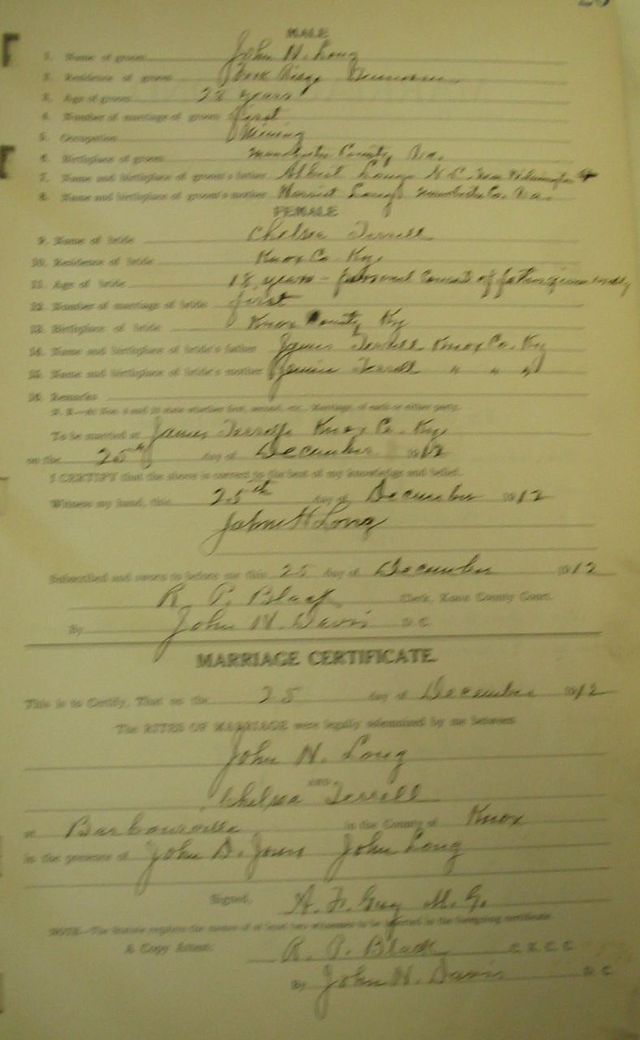 MALE
1. Name of groom John H. Long
2. Residence of groom Rock Ridge
3. Age of groom 28 years
4. Number of marriage of groom first
5. Occupation Mining
6. Birthplace of groom County, Va.
7. Name and birthplace of groom's father Albert Long N.C. near Wilmington
8. Name and birthplace of groom's mother Harriet Long Co. Va.
FEMALE
9. Name of bride Chelsea Terrell
10. Residence of bride Knox Co. Ky.
11. Age of bride 18 years - personal consent of father given
12. Number of marriage of bride first
13. Birthplace of bride Knox County Ky
14. Name and birthplace of bride's father James Terrell Knox Co. Ky
15. Name and birthplace of bride's mother Terrell " " "
16. Remarks
N. B.—At Nos. 4 and 12 state whether first, second, etc., Marriage, of each or either party.
To be married at James Terrell's Knox Co. Ky.
on the 25th day of December 1912
I CERTIFY that the above is correct to the best of my knowledge and belief.
Witness my hand, this 25th day of December 1912
John H Long
Subscribed and sworn to before me this 25 day of December 1912
R. P. Black Clerk, Knox County Court.
By John H. Davis D C
MARRIAGE CERTIFICATE.
This is to Certify, That on the 25 day of December 1912
The RITES OF MARRIAGE were legally solemnized by me between
John H. Long
AND
Chelsea Terrell
at Barbourville in the County of Knox
in the presence of John D. Jones John Long
Signed, A. F. Guy M. G.
NOTE.—The Statute requires the names of at least two witnesses to be inserted in the foregoing certificate.
A Copy Attest: R. P. Black C K C C
By John H. Davis D C